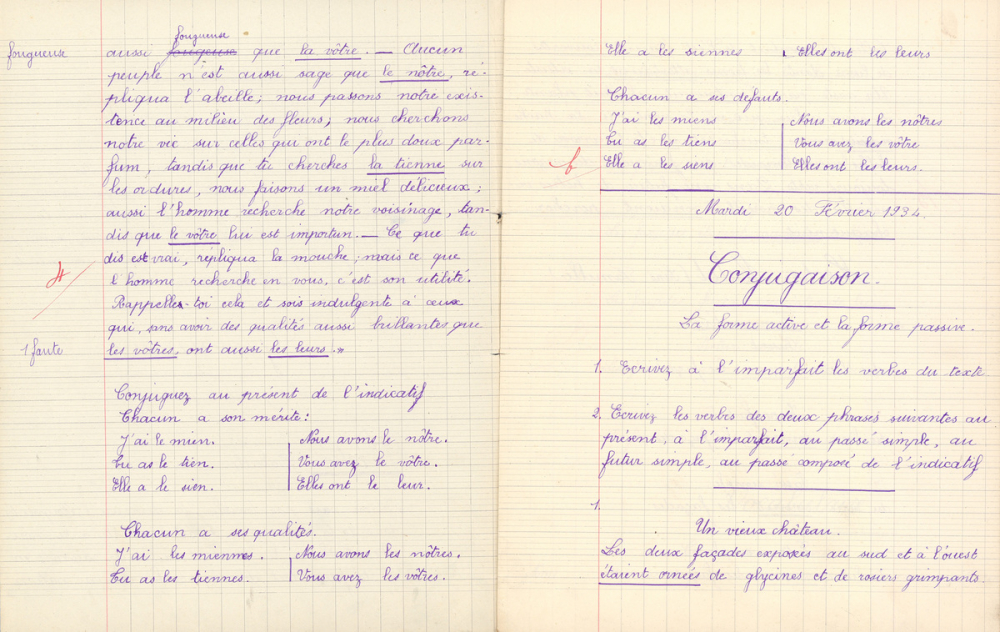 fougueuse
fougueuse
aussi fougeuse que la vôtre. — Aucun
peuple n'est aussi sage que le nôtre, ré-
pliqua l'abeille; nous passons notre exis-
tence au milieu des fleurs; nous cherchons
notre vie sur celles qui ont le plus doux par-
fum, tandis que tu cherches la tienne sur
les ordures, nous faisons un miel délicieux;
aussi l'homme recherche notre voisinage, tan-
dis que le vôtre lui est importun. — Ce que tu
dis est vrai, répliqua la mouche; mais ce que
l'homme recherche en vous, c'est son utilité.
Rappelle-toi cela et sois indulgente à ceux
qui, sans avoir des qualités aussi brillantes que
1 faute
les vôtres, ont aussi les leurs. »
Conjuguez au présent de l'indicatif
Chacun a son mérite:
J'ai le mien. Nous avons le nôtre.
Tu as le tien. Vous avez le vôtre.
Elle a le sien. Elles ont le leur.
Chacun a ses qualités.
J'ai les miennes. Nous avons les nôtres.
Tu as les tiennes. Vous avez les vôtres.
Elle a les siennes Elles ont les leurs
Chacun a ses defauts.
J'ai les miens Nous avons les nôtres
Tu as les tiens Vous avez les vôtre
Elle a les siens Elles ont les leurs.
Mardi 20 Février 1934.
Conjugaison.
La forme active et la forme passive.
1. Ecrivez à l'imparfait les verbes du texte
2. Ecrivez les verbes des deux phrases suivantes au
présent, à l'imparfait, au passé simple, au
futur simple, au passé composé de l'indicatif
1.
Un vieux château.
Les deux façades exposés au sud et à l'ouest
étaient ornées de glycines et de rosiers grimpants.